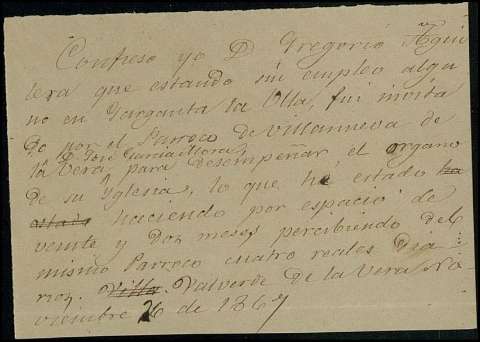 Confieso yo D. Gregorio Agui
lera que estando sin empleo algu
no en Garganta la Olla, fui invita
do por el Parroco de Villanueva de
la Vera, D. José Garcia Mora, para desempeñar el organo
de su Yglesia, lo que hé estado ha
estado haciendo por espacio de
veinte y dos meses, percibiendo del
mismo Parroco cuatro reales dia
rios. Villa Valverde de la Vera No
viembre 26 de 1867